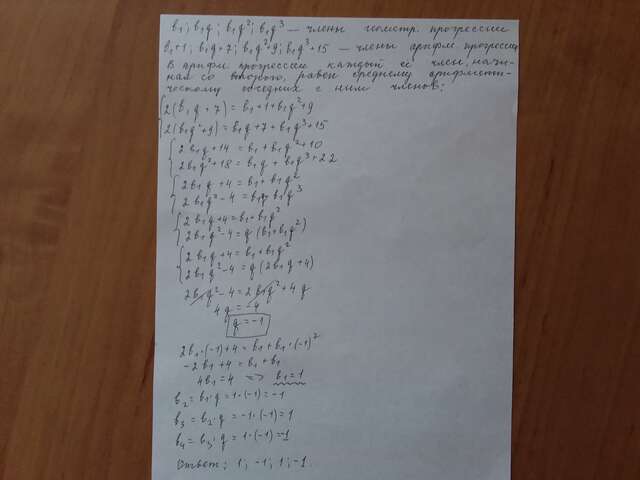 b₁; b₁q; b₁q²; b₁q³ – члены геометр. прогрессии
b₁+1; b₁q+7; b₁q²+9; b₁q³+15 – члены арифм. прогрессии
В арифм прогрессии каждый её член, начи-
ная со второго, равен среднему арифмети-
ческому соседних с ним членов:
2(b₁q+7) = b₁+1+b₁q²+9
2(b₁q²+9) = b₁q+7+b₁q³+15
2b₁q+14 = b₁+b₁q²+10
2b₁q²+18 = b₁q+b₁q³+22
2b₁q+4 = b₁+b₁q²
2b₁q²-4 = b₁q+b₁q³
2b₁q+4 = b₁+b₁q²
2b₁q²-4 = q(b₁+b₁q²)
2b₁q+4 = b₁+b₁q²
2b₁q²-4 = q(2b₁q+4)
2b₁q²-4 = 2b₁q²+4q
4q = -4
q = -1
2b₁·(-1)+4 = b₁+b₁·(-1)²
-2b₁+4 = b₁+b₁
4b₁=4 => b₁=1
b₂=b₁·q=1·(-1)=-1
b₃=b₂·q=-1·(-1)=1
b₄=b₃·q=1·(-1)=-1
Ответ: 1; -1; 1; -1.